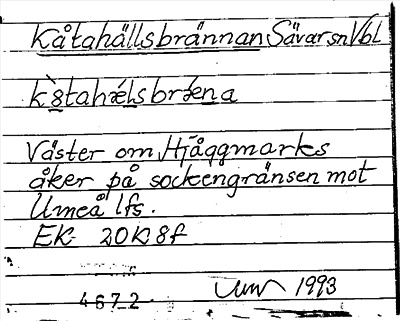 Kåtahällsbrännan Sävar sn Vbl
k'åtahǽlsbrǽna
Väster om Hjåggmarks
åker på sockengränsen mot
Umeå lfs.
EK 20K8f
1993
4672